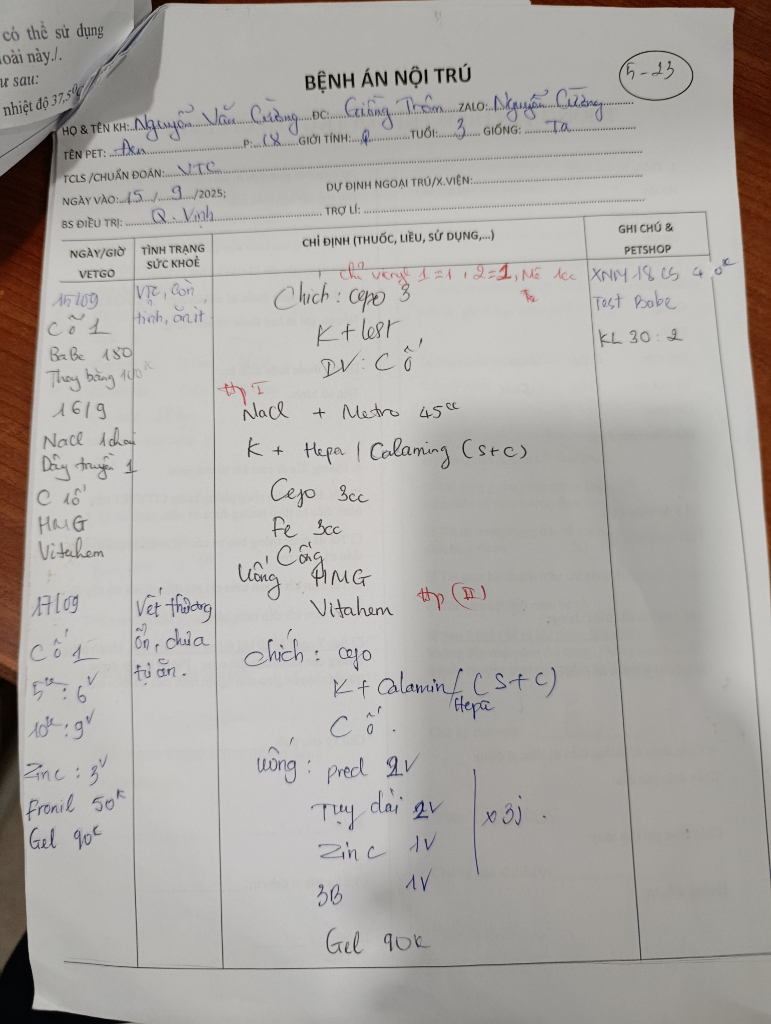 có thể sử dụng
oài này./.
ư sau:
nhiệt độ 37,5°C
BỆNH ÁN NỘI TRÚ
5-23
HỌ & TÊN KH: Nguyễn Văn Cường ĐC: Giồng Trôm ZALO: Nguyễn Cường
TÊN PET: P: GIỚI TÍNH: TUỔI: 3 GIỐNG: Ta
TCLS /CHUẨN ĐOÁN: VTC
NGÀY VÀO: 15 / 9 /2025; DỰ ĐỊNH NGOẠI TRÚ/X.VIÊN:
BS ĐIỀU TRỊ: Q. Vinh TRỢ LÍ:
NGÀY/GIỜ VETGO
TÌNH TRẠNG SỨC KHOẺ
CHỈ ĐỊNH (THUỐC, LIỀU, SỬ DỤNG,...)
GHI CHÚ & PETSHOP
15/09
Cố 1
BaBe 180
Thay băng 100k
VTC, còn
tỉnh, ăn ít
1=1, 2=1, Mê 1cc
Chích: cepo 3
K + test
DV: Cố
XNM 18 CS 4
Test Babe
KL 30: 2
16/9
Nacl 1 chai
Dây truyền 1
C 1ố
HMG
Vitahem
Hp I
Nacl + Metro 45cc
K + Hepa / Calaming (S+C)
Cepo 3cc
Fe 3cc
Công
Uống HMG
Vitahem
17/09
Cố 1
5k: 6v
10k: 9v
Zinc: 3v
Fronil 50k
Gel 90k
Vết thương
ổn, chưa
tự ăn.
Hp (II)
Chích: cepo
K + Calamin / (S+C)
Hepa
Cố.
Uống: pred 2v
Tụy dài 2v
Zinc 1v
3B 1v
x 3j.
Gel 90k